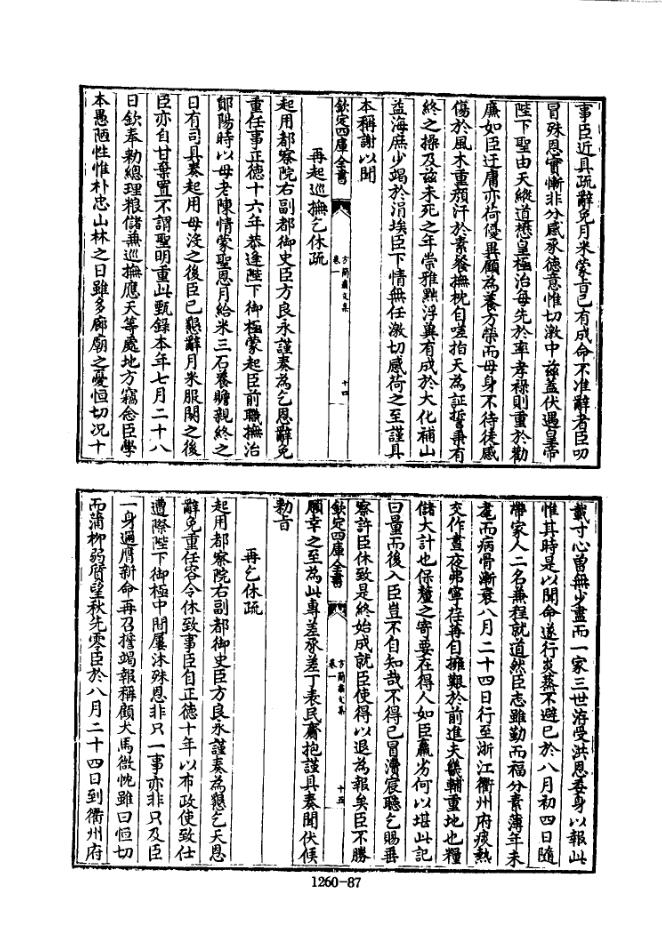 事臣近具疏辭免月米蒙旨已有成命不准辭者臣叨
冒殊恩實慚非分感承德意惟切激中兹蓋伏遇皇帝
陛下聖由天縱道懋皇極治每先於率孝祿則重於勸
廉如臣迂庸亦荷優異顧為養方榮而母身不待徒感
傷於風木重顏汗於素餐撫枕自嗟指天為証誓秉有
終之操及兹未死之年崇雅黜浮冀有成於大化補山
益海庶少竭於涓埃臣下情無任激切感荷之至謹具
本稱謝以聞
欽定四庫全書
方簡肅文集
卷一
十四
再起巡撫乞休疏
起用都察院右副都御史臣方良永謹奏為乞恩辭免
重任事正德十六年恭逢陛下御極蒙起臣前職撫治
鄖陽時以母老陳情蒙聖恩月給米三石養贍親終之
日有司具奏起用母沒之後臣已懇辭月米服闋之後
臣亦自甘棄置不謂聖明重此甄錄本年七月二十八
日欽奉勅總理粮儲兼巡撫應天等處地方竊念臣學
本愚陋性惟朴忠山林之日雖多廊廟之憂恒切況十
載寸心曾無少盡而一家三世洊受洪恩委身以報此
惟其時是以聞命遂行炎蒸不避已於八月初四日隨
帶家人二名兼程就道然臣志雖勤而福分素薄年未
耄而病骨漸衰八月二十四日行至浙江衢州府痰熱
交作晝夜弗寧荏苒自擁艱於前進夫畿輔重地也糧
儲大計也保釐之寄要在得人如臣羸劣何以堪此記
曰量而後入臣豈不自知哉不得已冒瀆宸聽乞賜垂
察許臣休致是終始成就臣使得以退為報矣臣不勝
願幸之至為此專差承差丁表民齎抱謹具奏聞伏候
勅旨
欽定四庫全書
方簡肅文集
卷一
十五
再乞休疏
起用都察院右副都御史臣方良永謹奏為懇乞天恩
辭免重任容令休致事臣自正德十年以布政使致仕
遭際陛下御極中間屢沐殊恩非只一事亦非只及臣
一身適膺新命再召擔竭報稱顧犬馬微忱雖曰恒切
而蒲柳弱質望秋先零臣於八月二十四日到衢州府
1260-87